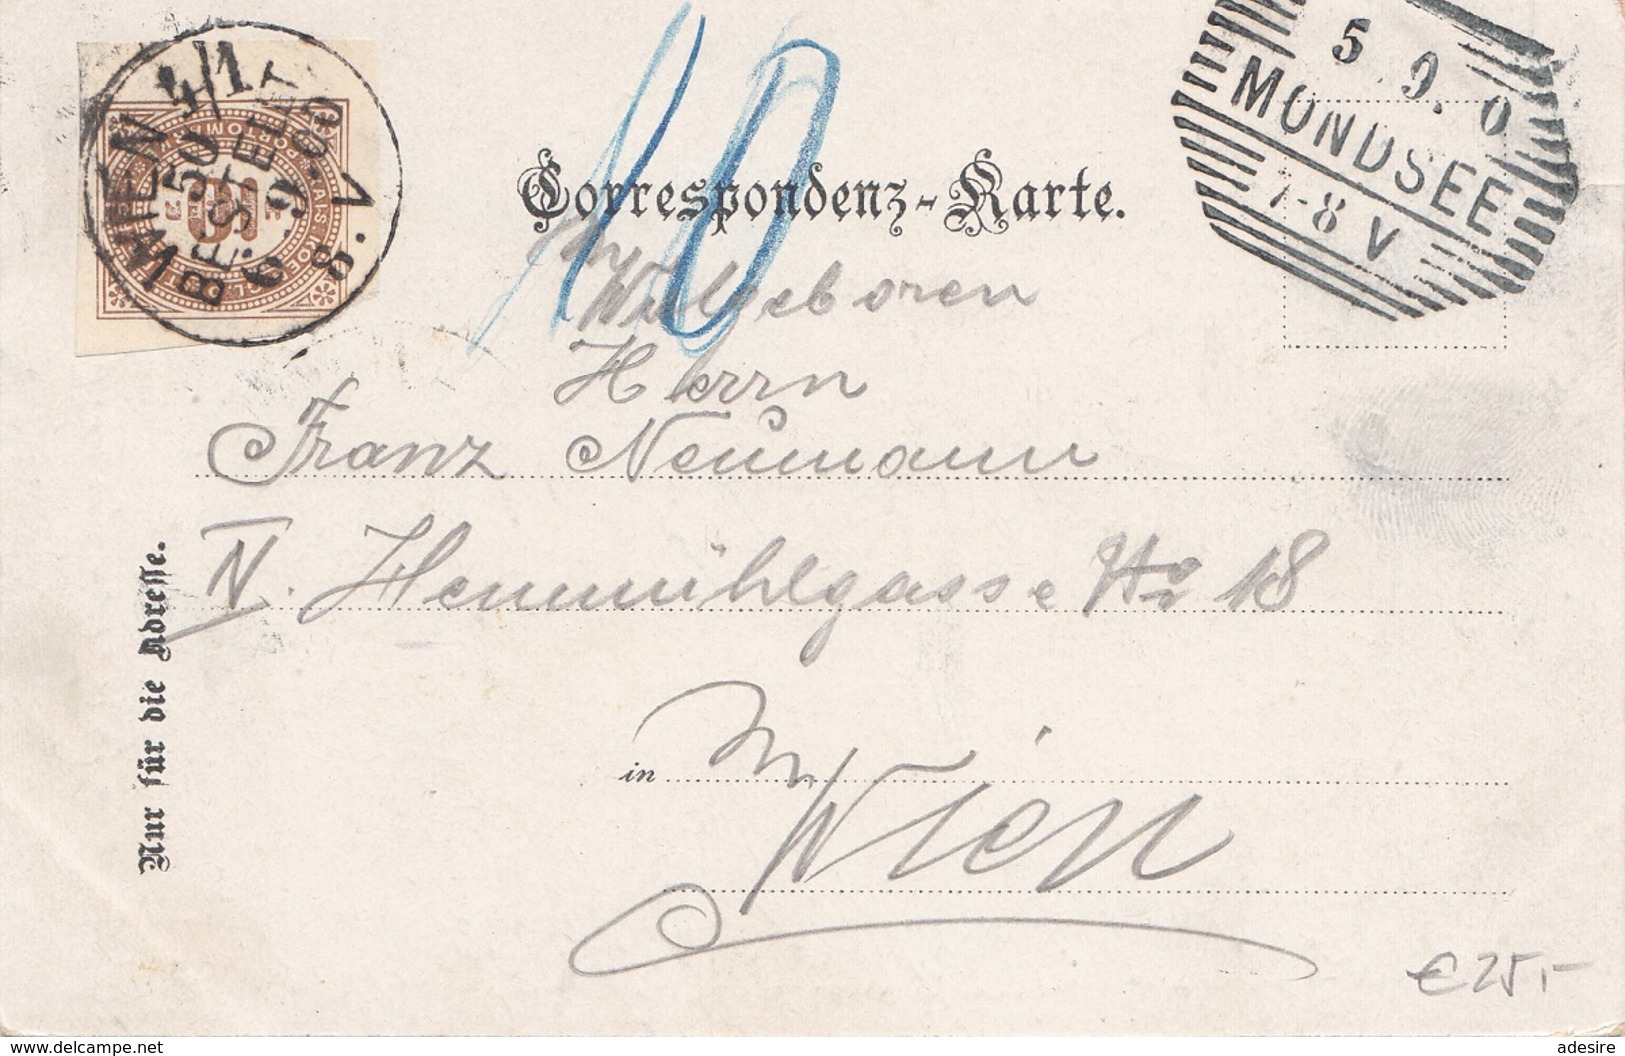 10
WIEN 4/1
BESTELLT
6.9.00
8.V
MONDSEE
5.9.0
7-8 V
Correspondenz-Karte.
An
Wolgeboren
Herrn
Franz Neumann
IV. Heumühlgasse No 18
in Wien
Nur für die Adresse.
€ 25,-
www.delcampe.net
adesire